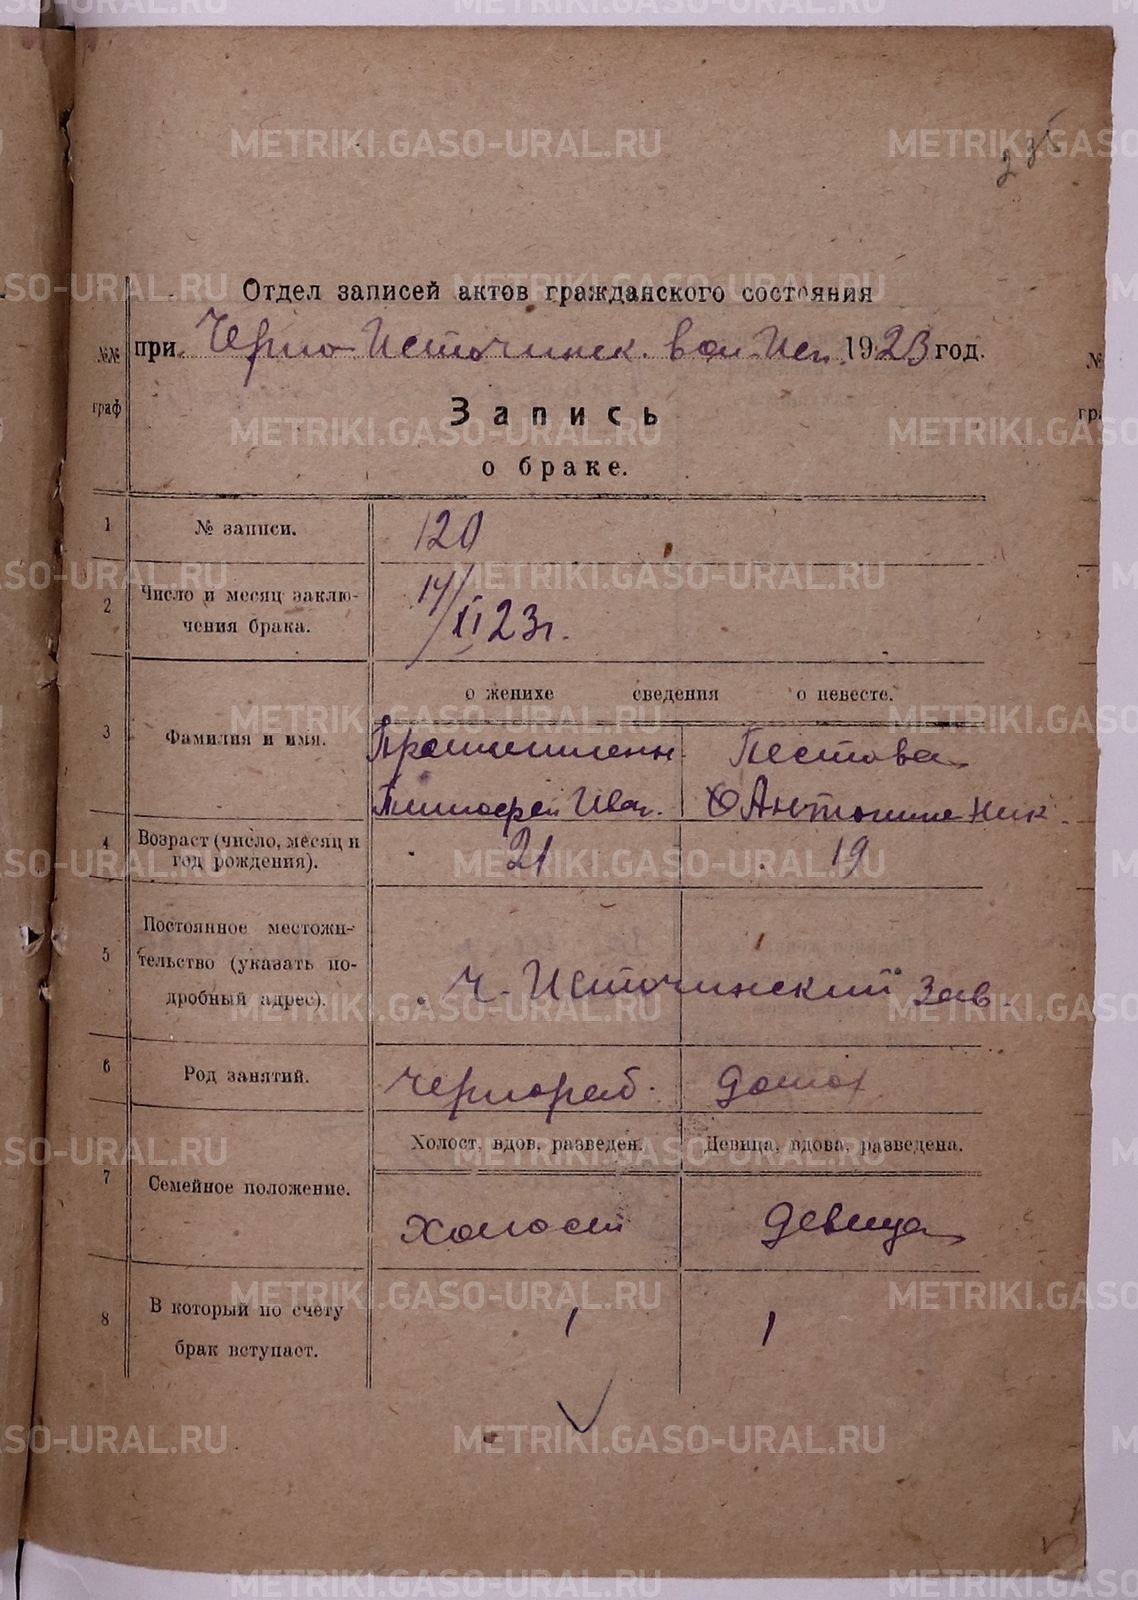 235
Отдел записей актов гражданского состояния
при Черно-Источинск. вол. Исп. 1923 год.
№№ граф
Запись
о браке.
1 № записи. 120
2 Число и месяц заключения брака. 14/XI 23 г.
о женихе сведения о невесте.
3 Фамилия и имя.
Пестова
Тимофей Иван. Антонина Ник.
4 Возраст (число, месяц и год рождения). 21 19
5 Постоянное местожительство (указать подробный адрес).
Ч-Источинский зав.
6 Род занятий. Чернораб. домох
Холост, вдов, разведен. Девица, вдова, разведена.
7 Семейное положение.
холост девица
8 В который по счету брак вступает. 1 1
METRIKI.GASO-URAL.RU